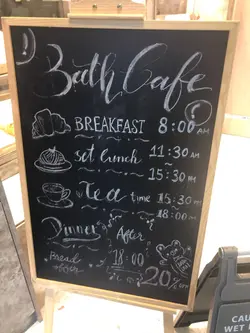 Bath Cafe
BREAKFAST 8:00 AM
set lunch 11:30 AM
15:30 AM
Tea time 15:30 PM
18:00 PM
Dinner After
Bread 18:00
20% OFF
CAU
WET